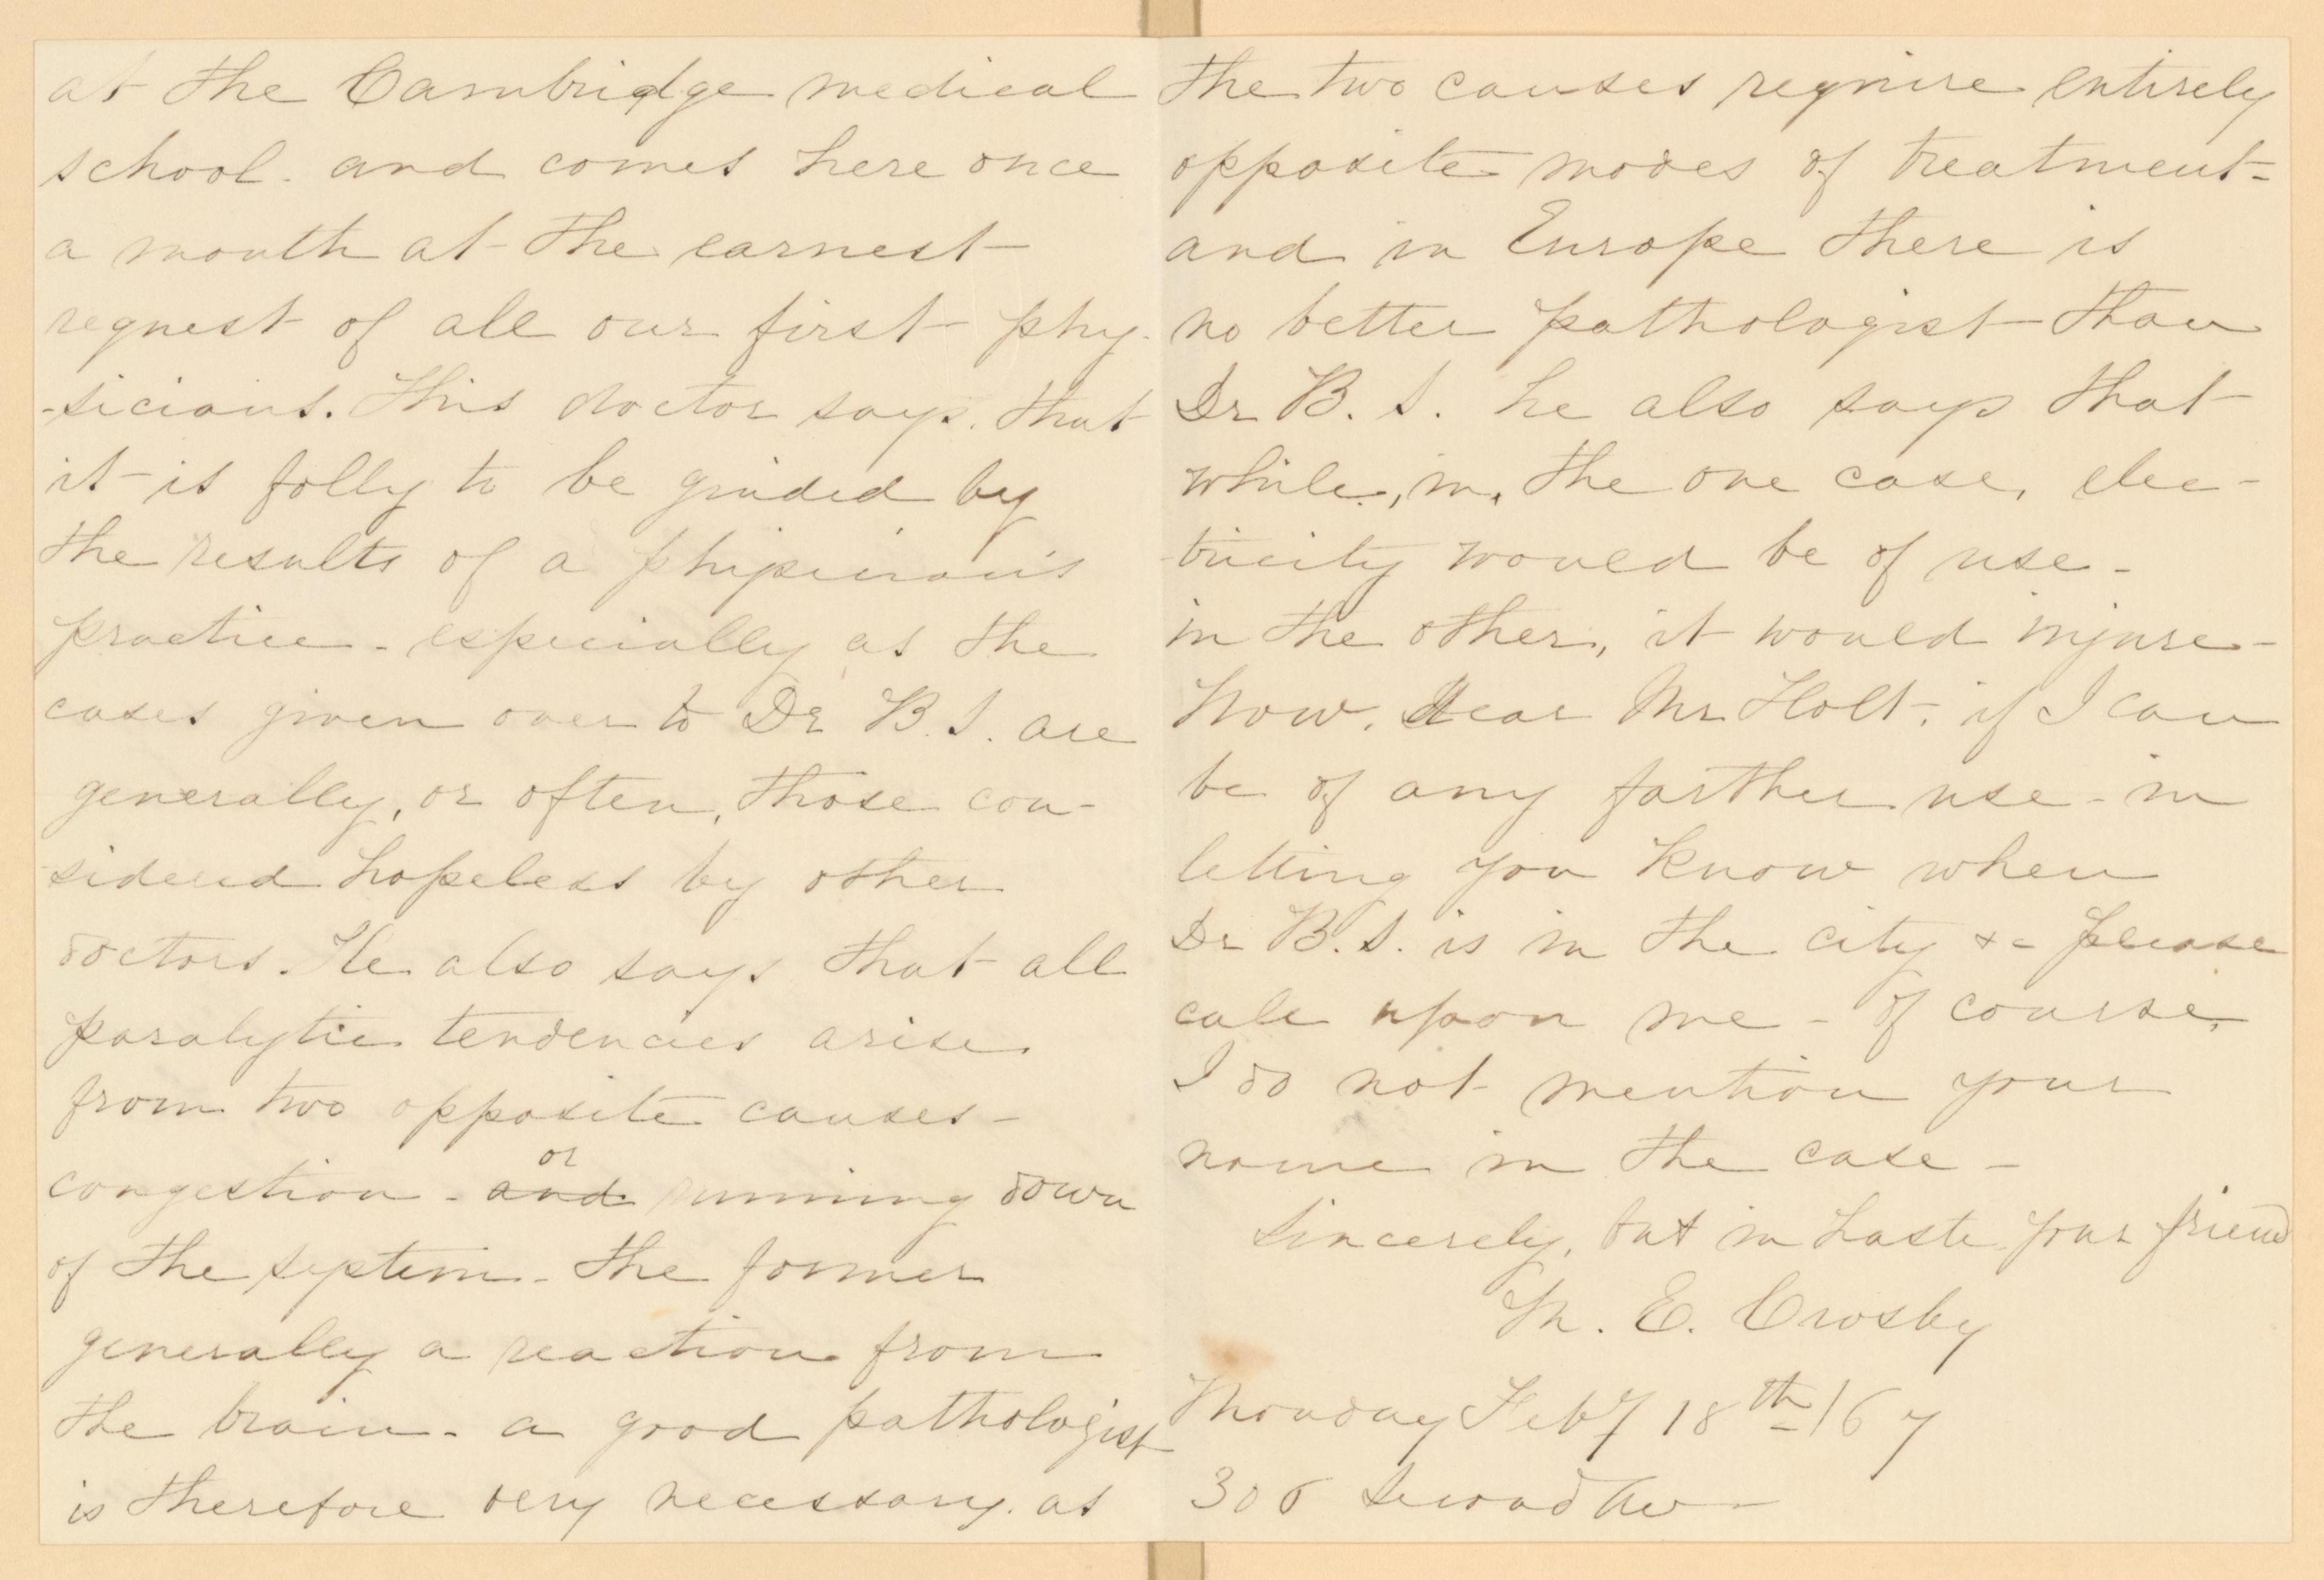 at the Cambridge medical
school. and comes here once
a month at the earnest
request of all our first phy-
-sicians. This doctor says. that
it is folly to be guided by
the results of a physician's
practice - especially as the
cases given over to Dr B. S. are
generally, or often, those con-
-sidered hopeless by other
doctors. He also says that all
paralytic tendencies arise
from two opposite causes -
or
congestion - and running down
of the system - the former
generally a reaction from
the brain - a good pathologist
is therefore very necessary. as
the two causes require entirely
opposite modes of treatment -
and in Europe there is
no better pathologist than
Dr B. S. he also says that
while, in, the one case, elec-
-tricity would be of use -
in the other, it would injure -
Now, dear Mr Holt, if I can
be of any farther use - in
letting you know when
Dr B. S. is in the city &c please
call upon me - of course,
I do not mention your
name in the case -
Sincerely, but in haste your friend
M. E. Crosby
Monday Feby 18th /67
306 Second Ave -